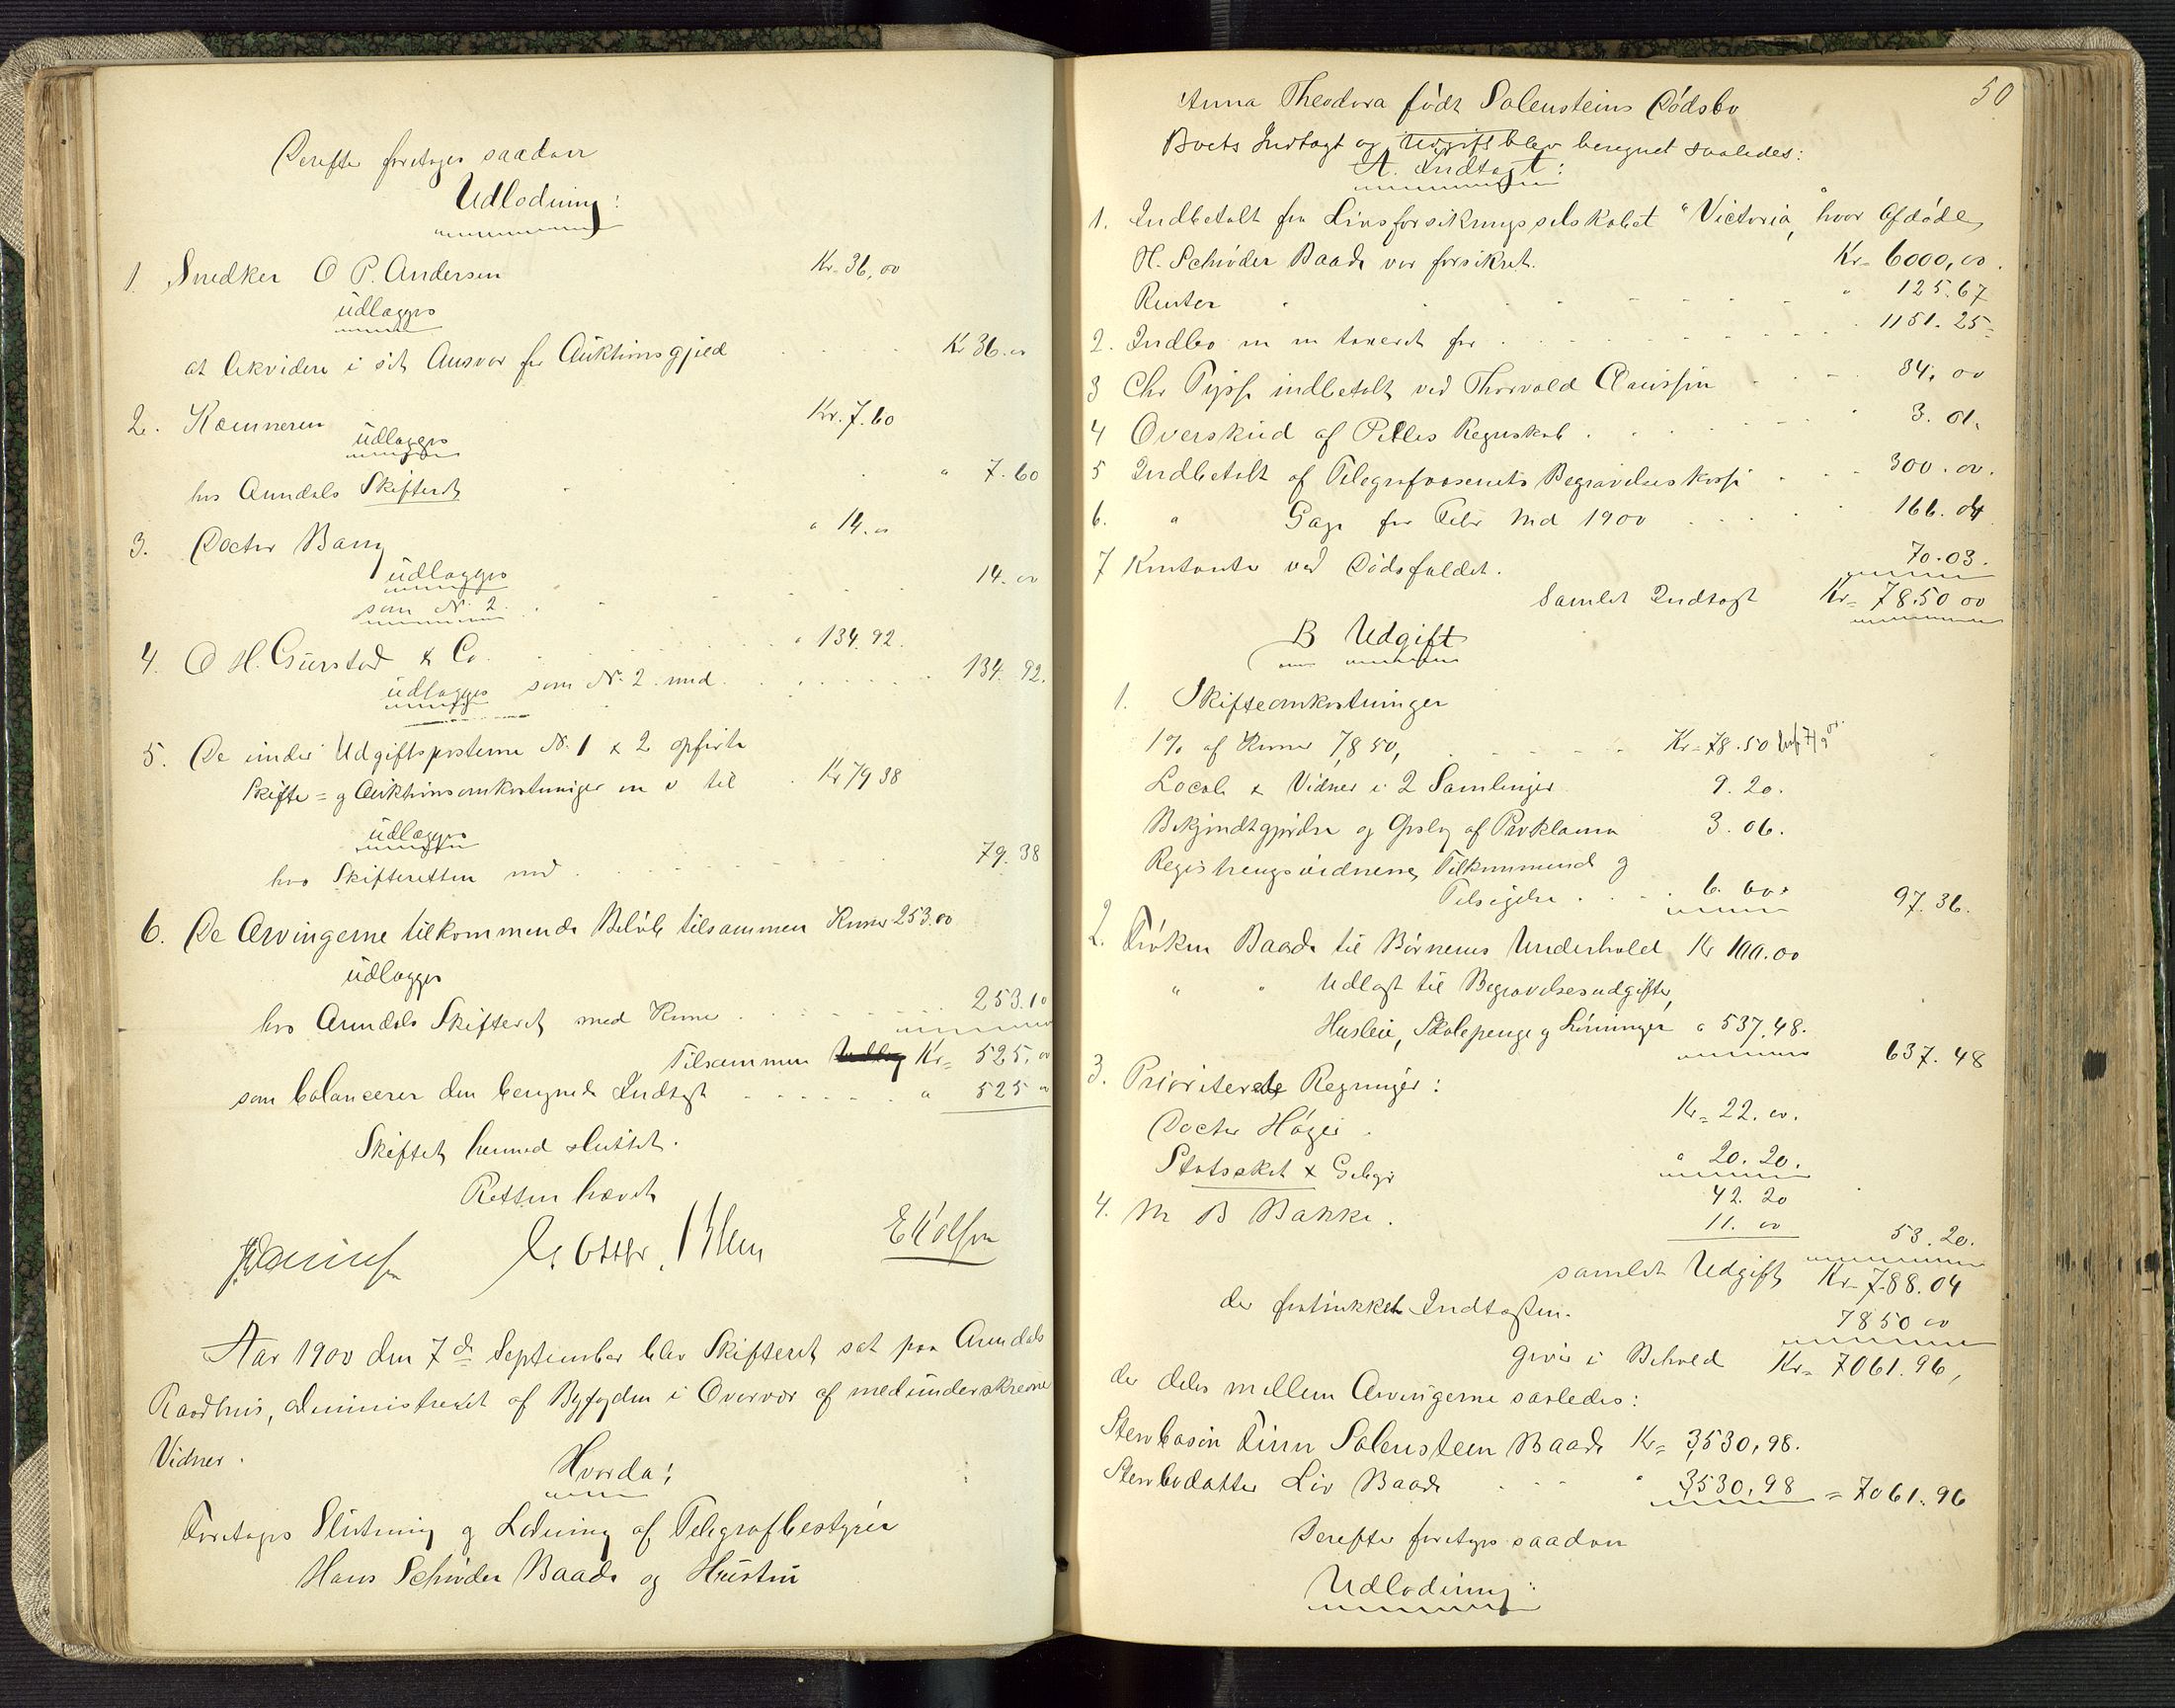 Derefter foretages saadan
Udlodning:
1. Snedker O P. Andersen Kr. 36,00
udlægges
at likvidere i sit Ansvar for Auktionsgjæld Kr 36.00
2. Kæmneren Kr. 7.60
udlægges
hos Arendals Skifteret " 7.60
3. Doctor Bang " 14.00
udlægges
som No 2. 14.00
4. O H. Gurstad & Co. " 134.92.
udlægges som No 2 med 134.92.
5. De under Udgiftsposterne No 1 & 2 opførte
Skifte= og Auktionsomkostninger m v til Kr 79 38
udlægges
hos Skifteretten med 79.38
6. De Arvingerne tilkommende Beløb tilsammen Kroner 253.00
udlægges
hos Arendals Skifteret med Kroner 253.10
Tilsammen Kr= 525,00
som balancerer den beregnede Indtægt " 525 00
Skiftet hermed sluttet.
Retten hævet
Aar 1900 den 7de September blev Skifteret sat paa Arendals
Raadhus, administreret af Byfogden i Overvær af medunderskrevne
Vidner.
Hvorda:
Foretoges Slutning og Lodning af Telegrafbestyrer
Hans Schrøder Baade og Hustru
50
Anna Theodora født Solensteins Dødsbo
Boets Indtægt og Udgift blev beregnet saaledes:
A. Indtægt:
1. Indbetalt fra Livsforsikringsselskabet "Victoria", hvor Afdøde
H. Schrøder Baade var forsikret. Kr= 6000,00.
Renter " 125.67
2. Indbo m m taxeret for 1151.25
3 Chr indbetalt ved Thorvald 34,00
4 Overskud af Regnskab 3.01.
5 Indbetalt af Telegrafvæsenets Begravelseskasse 300.00.
6. " Gage for Febr Md 1900 166.04
7 Kontante ved Dødsfaldet. 70.03.
Samlet Indtægt Kr= 7850 00
B Udgift
1. Skifteomkostninger
1% af Kroner 7,850, Kr= 78.50
Locale & Vidner i 2 Samlinger 9.20.
Bekjendtgjørelse og Opslag af Proklama 3.06.
Registreringsvidnernes Tilkommende og
Tilsigelse 6.60. 97.36.
2. Frøken Baade til Børnenes Underhold Kr 100.00
" " Udlagt til Begravelsesudgifter,
Husleie, Skolepenge og Lønninger " 537.48. 637.48
3. Prioriterede Regninger:
Doctor Høger Kr= 22.00.
Statsskat & Gebyr " 20.20.
42.20
4. M B Bakke. 11.00 53.20.
samlet Udgift Kr= 788.04
der fratrukket Indtægten. 7850 00
giver i Behold Kr= 7061.96,
der deles mellem Arvingerne saaledes:
Stervbosøn Finn Solenstein Baade Kr= 3,530,98.
Stervbodatter Liv Baade " 3,530,98 = 7061.96
Derefter foretoges saadan
Udlodning: